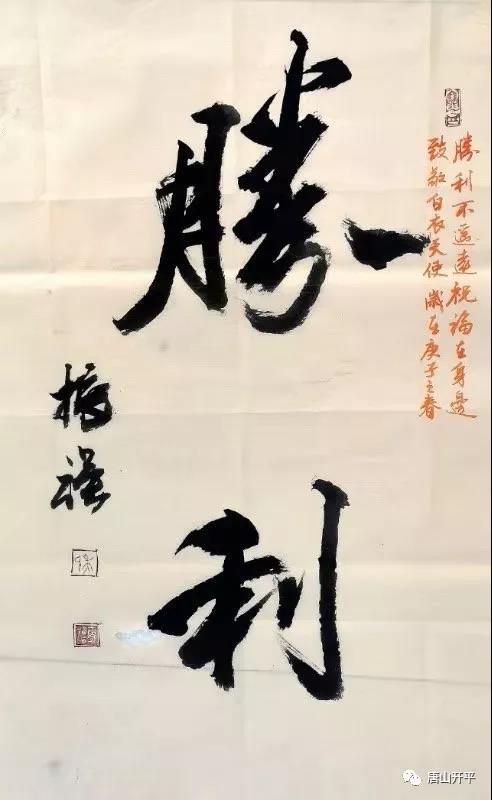 勝利不遥遠祝福在身邊
致敬白衣天使 歲在庚子之春
勝利
振
唐山开平